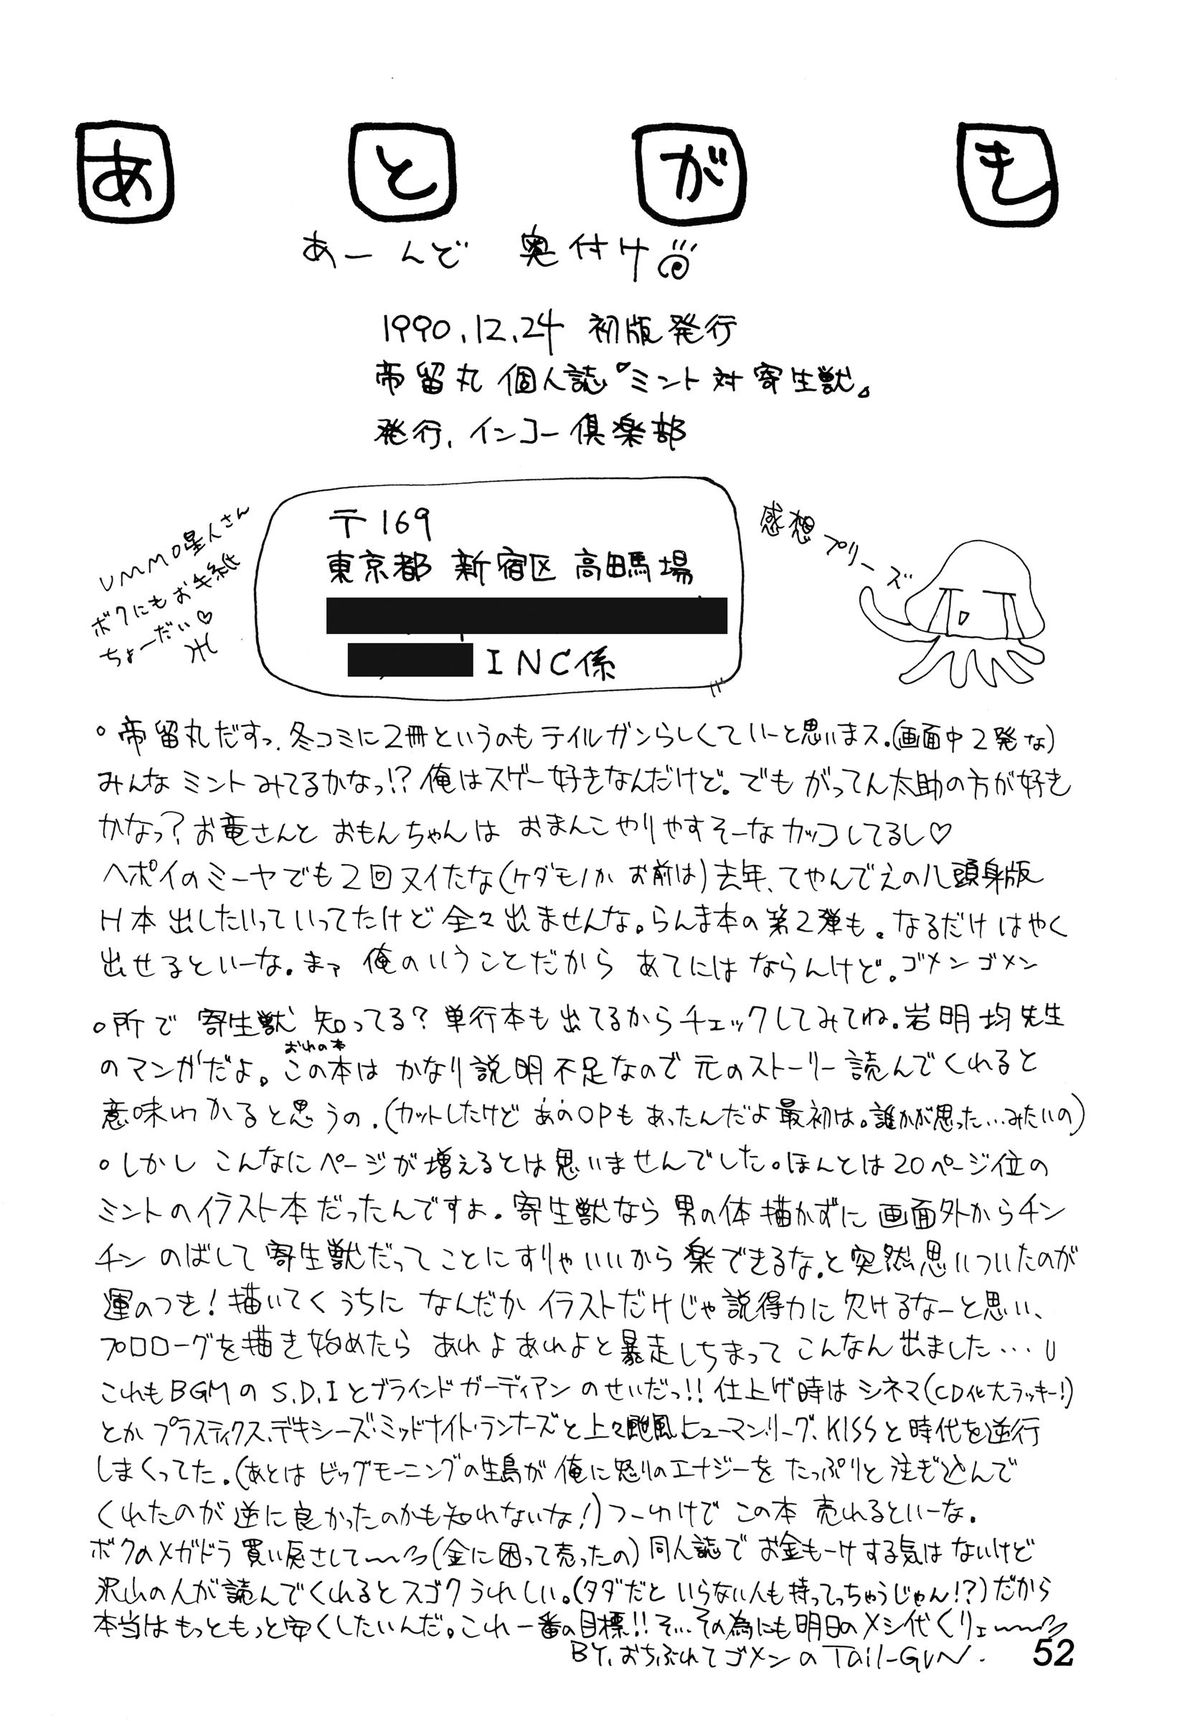 あとがき
あーんど 奥付け
1990.12.24 初版発行
帝留丸 個人誌『ミント対寄生獣』
発行、インコー倶楽部
〒169
東京都 新宿区 高田馬場
INC係
UMMO星人さん
ボクにもお手紙
ちょーだい♡
感想プリーズ
○帝留丸だすっ、冬コミに2冊というのもテイルガンらしくていーと思いまス。(画面中2発な)
みんなミントみてるかなっ!? 俺はスゲー好きなんだけど。でも がってん太助の方が好き
かなっ? お竜さんと おもんちゃんは おまんこやりやすそーなカッコしてるし♡
ヘポイのミーヤでも2回ヌイたな(ケダモノか お前は)去年、てやんでえの八頭身版
H本出したいっていってたけど全々出ませんな。らんま本の第2弾も。なるだけはやく
出せるといーな。まァ 俺のいうことだから あてにはならんけど。ゴメンゴメン
○所で 寄生獣 知ってる? 単行本も出てるからチェックしてみてね。岩明均先生
のマンガだよ。この本はかなり説明不足なので元のストーリー読んでくれると
おれの本
意味わかると思うの.(カットしたけど あのOPもあったんだよ最初は。誰かが思った…みたいの)
○しかし こんなにページが増えるとは思いませんでした。ほんとは20ページ位の
ミントのイラスト本だったんですよ. 寄生獣なら 男の体描かずに 画面外からチン
チン のばして 寄生獣だってことにすりゃいいから楽できるな。と突然思いついたのが
運のつき! 描いてくうちに なんだか イラストだけじゃ説得力に欠けるなーと思い、
プロローグを描き始めたら あれよあれよと暴走しちまって こんなん出ました…
これもBGMのS.D.Iとブラインドガーディアンのせいだっ!! 仕上げ時は シネマ(CD化大ラッキー!)
とか プラスティクス、デキシーズ・ミッドナイト・ランナーズと上々颱風ヒューマン・リーグ、KISSと時代を逆行
しまくってた.(あとは ビッグモーニングの生島が 俺に怒りのエナジーを たっぷりと注ぎ込んで
くれたのが逆に良かったのかも知れないな!)つーわけで この本 売れるといーな.
ボクのメガドラ買い戻させて〜〜(金に困って売ったの)同人誌で お金もーけする気は ないけど
沢山の人が読んでくれるとスゴクうれしい.(タダだと いらない人も持ってっちゃうじゃん!?)だから
本当はもっともっと安くしたいんだ。これ一番の目標!! そ…その為にも明日のメシ代くりェ〜〜
BY, おちぶれてゴメンのTail-GuN.
52